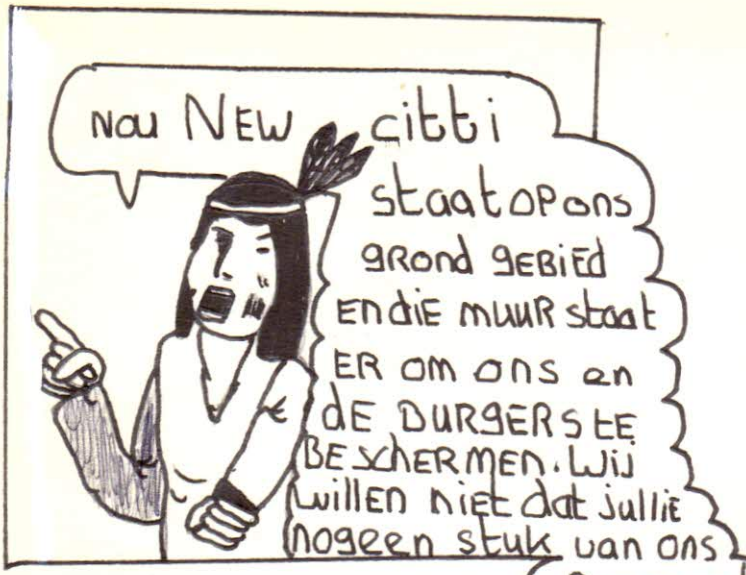 NOU NEW citti
staat op ons
gRond gEBiEd
EN diE muuR staat
ER om ons en
dE BURgERS tE
BESchERMEN. Wij
willEN niet dat jullie
nogeen stuk van ons